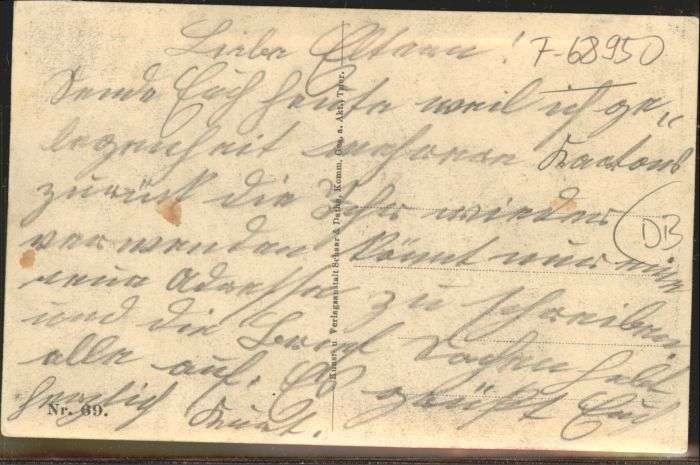 Liebe Eltern!
7-68950
Sende Euch heute weil ich ge„
legenheit mehrere Kartons
zurück die Ihr wieder
verwenden könnt nur eine
neue Adresse zu schreiben
und die Sachen hebt
alle auf. Es grüßt Euch
herzlich Kurt.
DB
Nr. 69.
Kunst- u. Verlagsanstalt Schaar & Dathe, Komm. Ges. a. Akt., Trier.